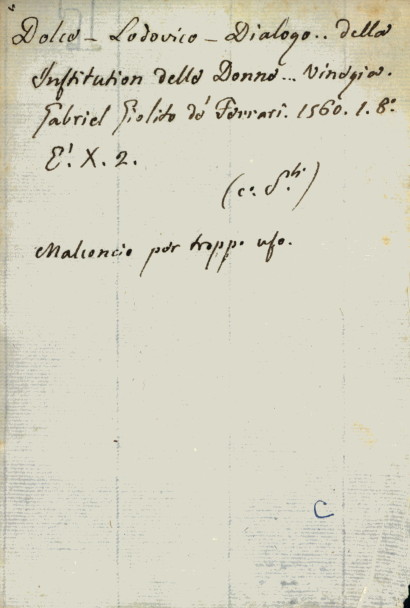 Dolce - Lodovico - Dialogo.. della
Institution delle Donne... Vinegia.
Gabriel Giolito de' Ferrari. 1560. 1. 8.º
E'. X. 2.
Malconcio per tropp. uso.
C